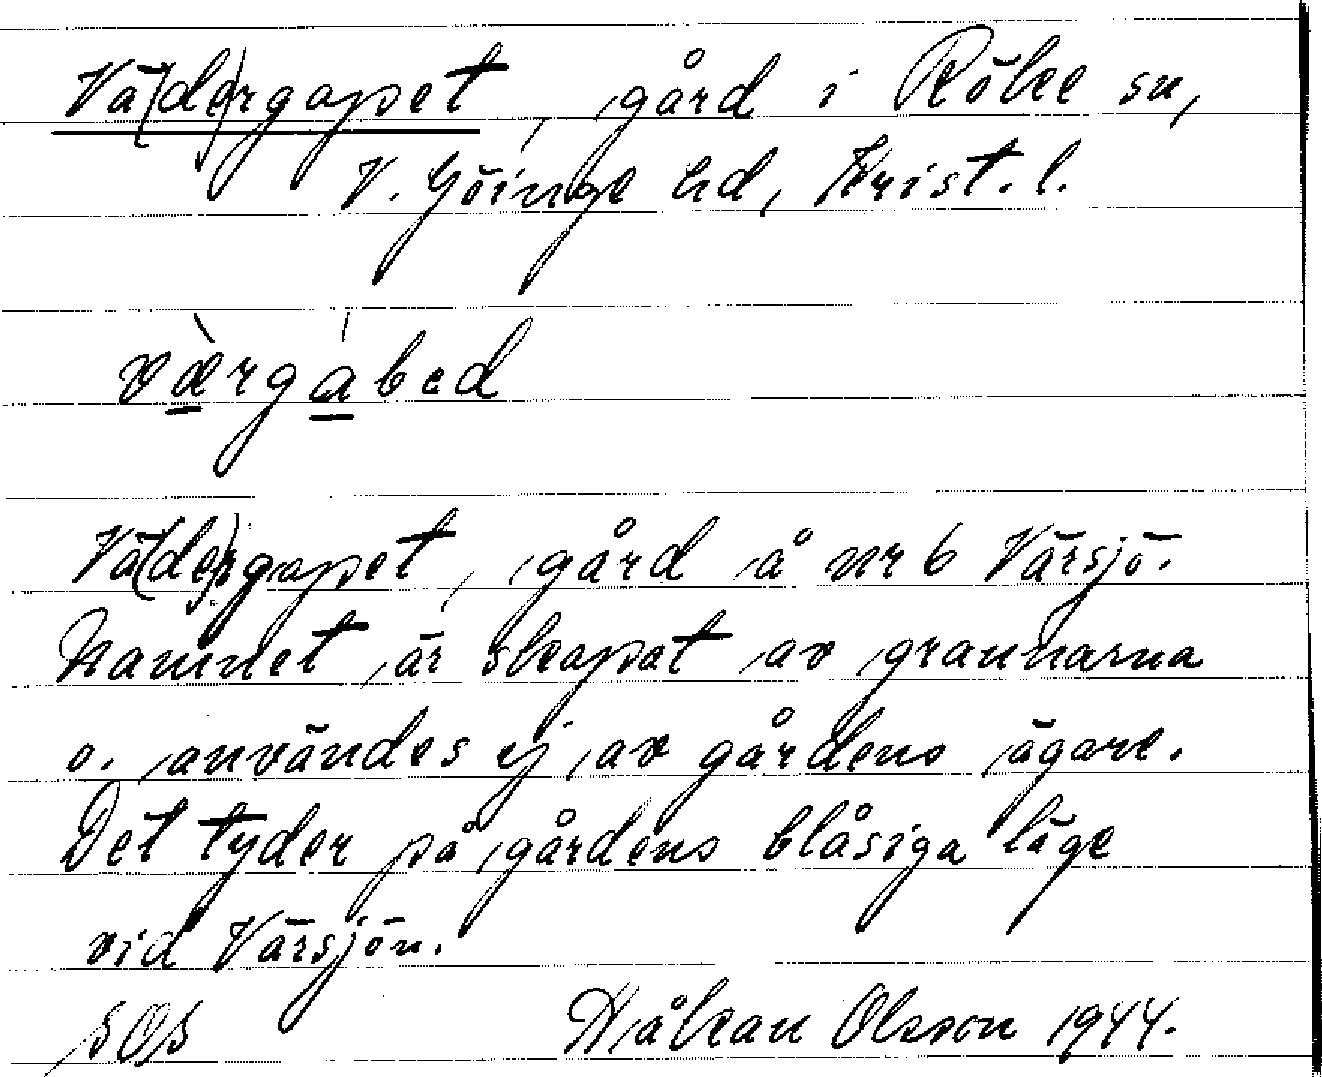 Vä(de)rgapet, gård i Röke sn,
V. Göinge hd, Krist. l.
væ̀rgábed
Vä(de)rgapet, gård å nr 6 Värsjö.
Namnet är skapat av grannarna
o. användes ej av gårdens ägare.
Det tyder på gårdens blåsiga läge
vid Värsjön.
SOS Håkan Olsson 1944.